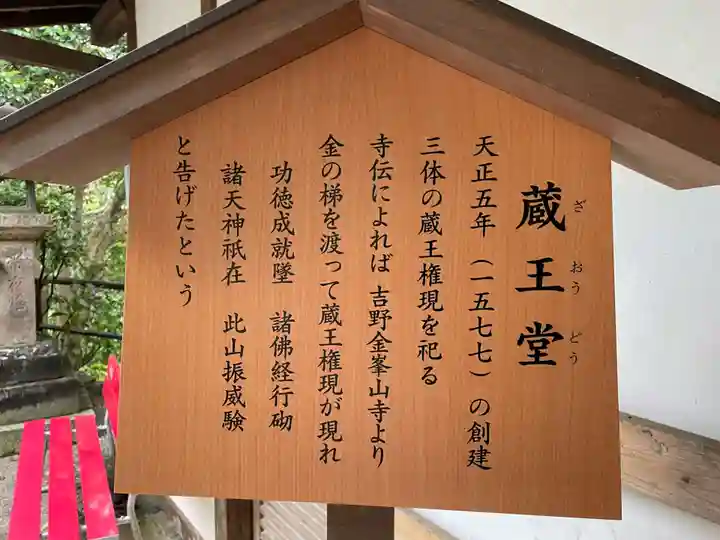 蔵王堂
ざおうどう
天正五年(一五七七)の創建
三体の蔵王権現を祀る
寺伝によれば 吉野金峯山寺より
金の梯を渡って蔵王権現が現れ
功徳成就墜 諸佛経行砌
諸天神祇在 此山振威験
と告げたという